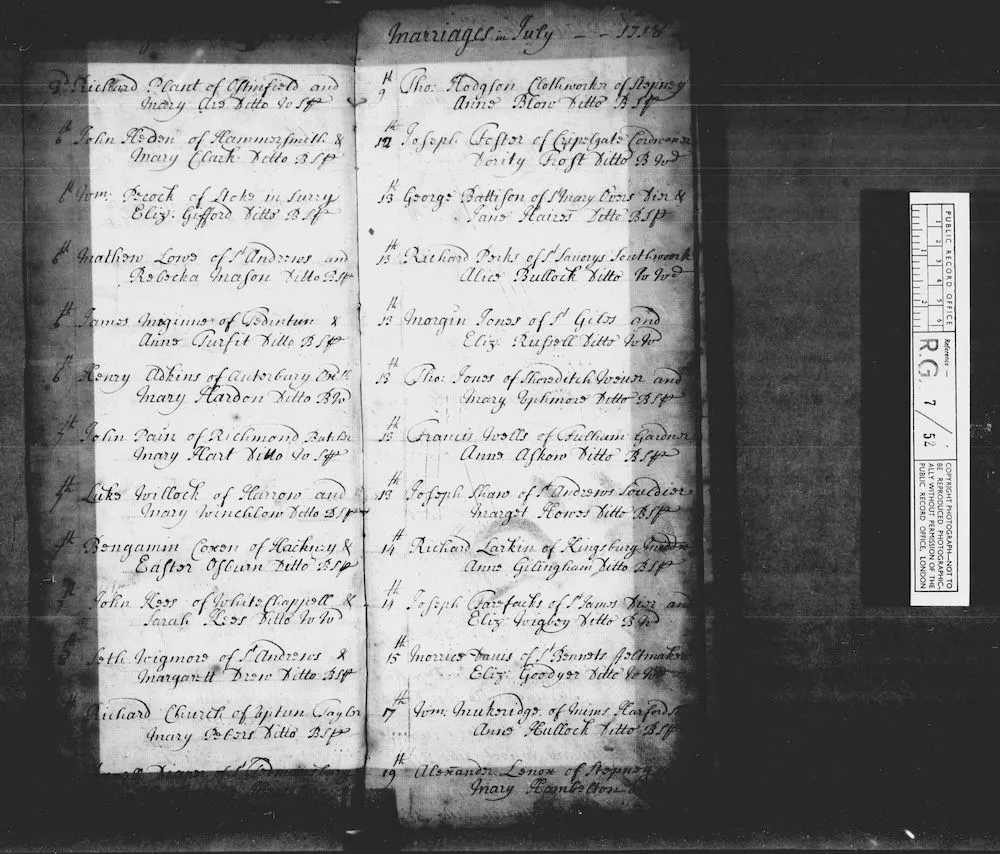 3d Richard Plant of Osinfield and
Mary Are Ditto W Sp
6th John Heden of Hammersmith &
Mary Clark Ditto B Sp
6th Wm: Pecock of Stoke in Surry
Eliz: Gifford Ditto B Sp
6th Mathew Lowe of St Andrews and
Rebecka Mason Ditto B Sp
6th James Meginne of Tedintun &
Anne Turfit Ditto B Sp
6th Henry Adkins of
Mary Hardon Ditto B Wd
7th John Pain of Richmond Butcher
Mary Hart Ditto W Sp
7th Luke Willock of Harrow and
Mary Winchlow Ditto B Sp
7th Bengamin Coxen of Hackney &
Easter Osburn Ditto B Sp
7 John Kees of White Chappell &
Sarah Kees Ditto W Wd
Seth Wigmore of St Andrews &
Margarett Drew Ditto B Sp
Richard Church of Uptun Taylor
Mary Peters Ditto B Sp
Marriages in July - - 1718
9th Tho: Hodgson Clothworkr of Stepney
Anne Blow Ditto B Sp
12th Joseph Foster of Cripelgate Cordwoner
Dority Frost Ditto B Wd
13th George Battison of St Mary Overs Dier &
Jane Haires Ditto B Sp
13th Richard Perks of St Savorys Southwork
Alice Bullock Ditto W Wd
13th Morgin Jones of St Giles and
Eliz: Russell Ditto W Wd
13th Tho: Jones of Shoreditch Wever and
Mary Uphmore Ditto B Sp
13th Francis Wells of Fulham Gardner
Anne Askow Ditto B Sp
13th Joseph Shaw of St Andrews Souldier
Marget Howes Ditto B Sp
14th Richard Larkin of Kingsbury
Anne Gilingham Ditto B Sp
14th Joseph Farefacks of St James Dier and
Eliz: Wigbey Ditto B Wd
15th Morrice Davis of St Bennets Feltmaker
Eliz: Goodyer Ditto W Wd
17th Wm: Mukeridge of Mims Harfords
Anne Hullock Ditto B Sp
19th Alexander Lenox of Stepney
Mary Hambelton
PUBLIC RECORD OFFICE
1 2 3 4 5 6
1 2
Reference:—
R.G. 7/52
COPYRIGHT PHOTOGRAPH—NOT TO
BE REPRODUCED PHOTOGRAPHIC-
ALLY WITHOUT PERMISSION OF THE
PUBLIC RECORD OFFICE, LONDON